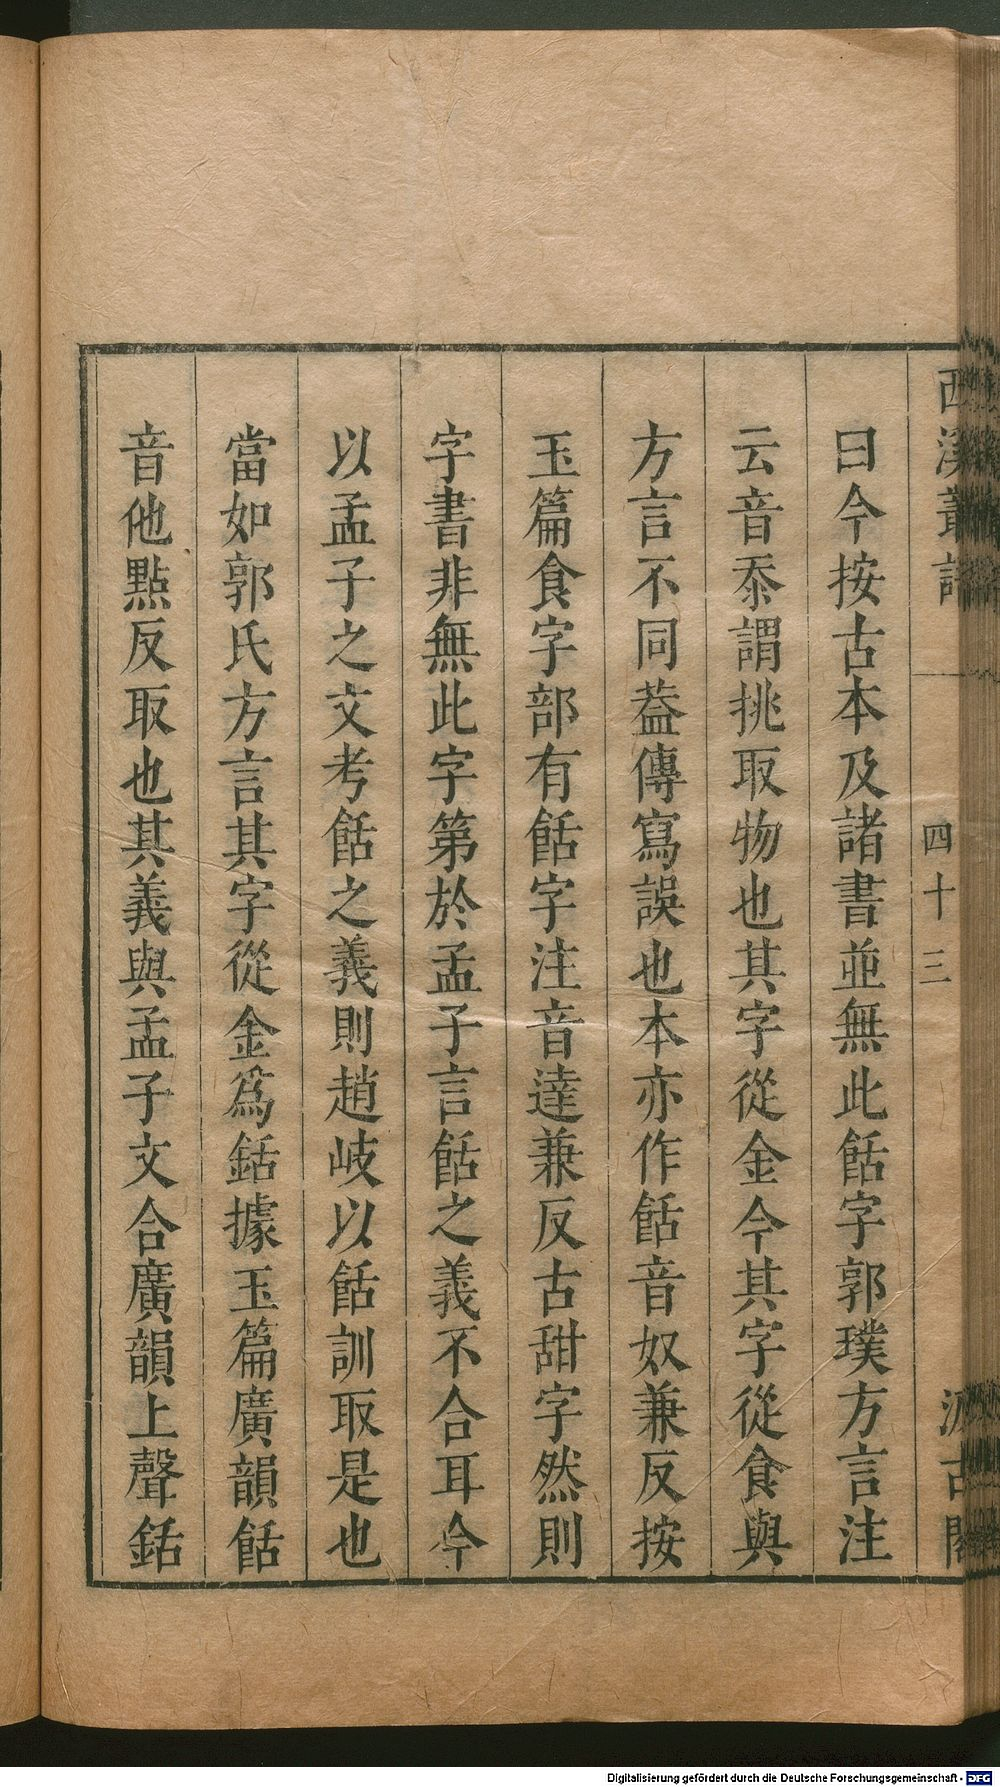 西溪叢語
四十三
汲古閣
曰今按古本及諸書並無此餂字郭璞方言注
云音忝謂挑取物也其字從金今其字從食與
方言不同葢傳寫誤也本亦作餂音奴兼反按
玉篇食字部有餂字注音達兼反古甜字然則
字書非無此字第於孟子言餂之義不合耳今
以孟子之文考餂之義則趙岐以餂訓取是也
當如郭氏方言其字從金爲銛據玉篇廣韻餂
音他點反取也其義與孟子文合廣韻上聲銛
Digitalisierung gefördert durch die Deutsche Forschungsgemeinschaft - DFG